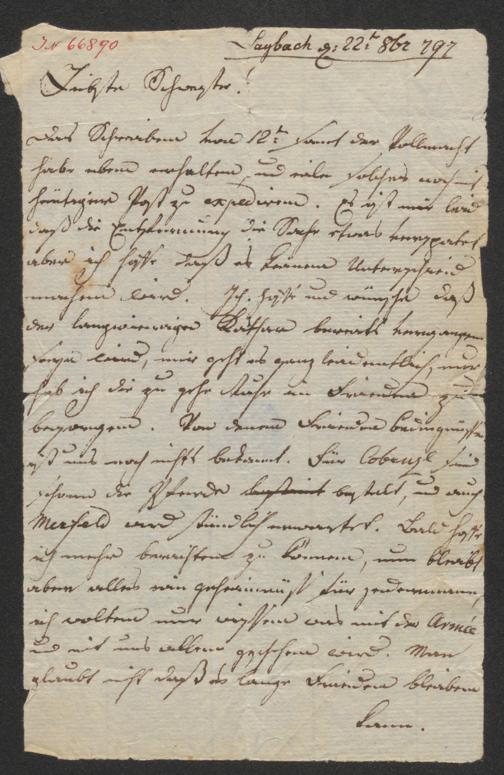 IN 66890
Laybach d: 22t 8br 797
Liebste Schwester!
Das Schreiben vom 12t samt der Vollmacht
habe eben erhalten, und eile solches noch mit
heutiger Post zu expediren. Es ist mir leid
daß die Entfernung die Sache etwas verspatet
aber ich hoffe daß es keinen Unterschied
machen wird. Ich hoffe und wünsche daß
der langwierige Kathar bereits vergangen
seyn wird, mir geht es ganz leidentlich, nur
hab ich die zu gehe Ruhe im Frieden
begangen. Von denen Friedens bedingnissen
ist uns noch nichts bekannt. Für Cobenzl sind
schon die Pferde bestelt, und auch
Merfeld wird stündlich erwartet. Bald hoffe
ich mehr berichten zu können, nun bleibt
aber alles ein geheimnüß für jedermann,
ich wolte nur wissen was mit der Armée
und mit uns allen geschehen wird. Man
glaubt nicht daß es lange Frieden bleiben
kann.